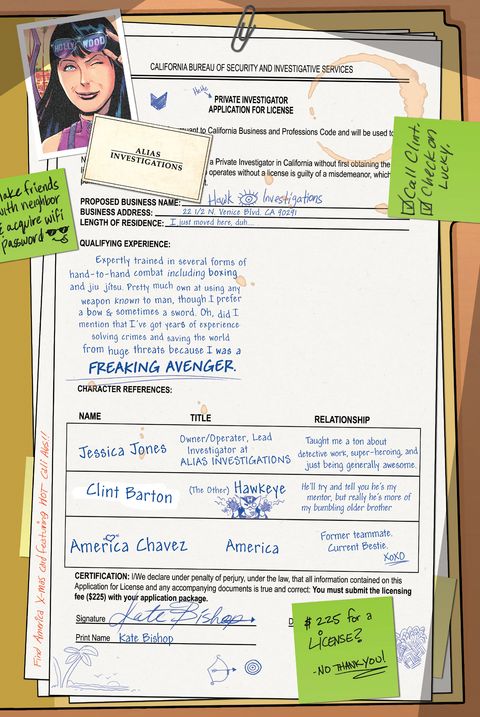 HOLLY WOOD
CALIFORNIA BUREAU OF SECURITY AND INVESTIGATIVE SERVICES
PRIVATE INVESTIGATOR
APPLICATION FOR LICENSE
to California Business and Professions Code and will be used to
ALIAS
INVESTIGATIONS
a Private Investigator in California without first obtaining the
operates without a license is guilty of a misdemeanor, which
Call Clint.
Check on
Lucky.
make friends
with neighbor
& acquire wifi
password
PROPOSED BUSINESS NAME: Hawk Investigations
BUSINESS ADDRESS: 22 1/2 N. Venice Blvd. CA 90291
LENGTH OF RESIDENCE: I just moved here, duh...
QUALIFYING EXPERIENCE:
Expertly trained in several forms of
hand-to-hand combat including boxing
and jiu jitsu. Pretty much own at using any
weapon known to man, though I prefer
a bow & sometimes a sword. Oh, did I
mention that I've got years of experience
solving crimes and saving the world
from huge threats because I was a
FREAKING AVENGER.
CHARACTER REFERENCES:
NAME TITLE RELATIONSHIP
Jessica Jones
Owner/Operater, Lead
Investigator at
ALIAS INVESTIGATIONS
Taught me a ton about
detective work, super-heroing, and
just being generally awesome.
Clint Barton
(The Other) Hawkeye
He'll try and tell you he's my
mentor, but really he's more of
my bumbling older brother
America Chavez
America
Former teammate.
Current Bestie.
XOXO
Find America X-mas card featuring HOT Cali Abs!!
CERTIFICATION: I/We declare under penalty of perjury, under the law, that all information contained on this
Application for License and any accompanying documents is true and correct: You must submit the licensing
fee ($225) with your application package.
Signature Kate Bishop
Print Name Kate Bishop
$225 for a
LICENSE?
-NO THANK YOU!